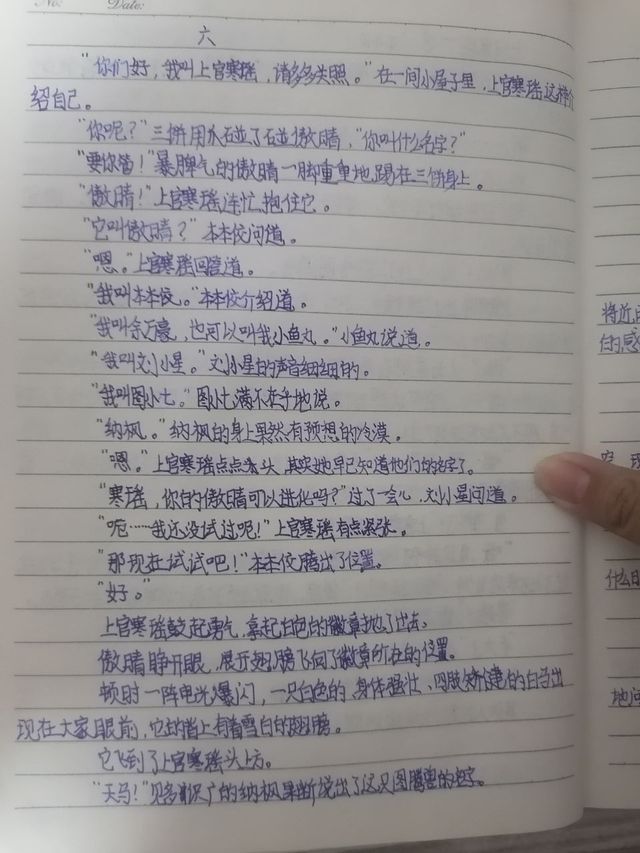 No: Date:
六
"你们好，我叫上官寒瑶，请多多关照。"在一间小屋子里，上官寒瑶这样介
绍自己。
"你呢？"三拼用爪碰了碰傲晴，"你叫什么名字？"
"要你管！"暴脾气的傲晴一脚重重地踢在三拼身上。
"傲晴！"上官寒瑶连忙抱住它。
"它叫傲晴？"本本佼问道。
"嗯。"上官寒瑶回答道。
"我叫本本佼。"本本佼介绍道。
"我叫余万豪，也可以叫我小鱼丸。"小鱼丸说道。
"我叫刘小星。"刘小星的声音细细的。
"我叫图小七。"图小七满不在乎地说。
"纳枫。"纳枫的身上果然有预想的冷漠。
"嗯。"上官寒瑶点点头，其实她早已知道他们的名字了。
"寒瑶，你的傲晴可以进化吗？"过了一会儿，刘小星问道。
"呃……我还没试过呢！"上官寒瑶有点紧张。
"那现在试试吧！"本本佼腾出了位置。
"好。"
上官寒瑶鼓起勇气，拿起白色的徽章抛了过去。
傲晴睁开眼，展开翅膀飞向了徽章所在的位置。
顿时一阵电光爆闪，一只白色的、身体强壮、四肢矫健的白马出
现在大家眼前，它的背上有着雪白的翅膀。
它飞到了上官寒瑶头上方。
"天马！"见多识广的纳枫果断说出了这只图腾兽的名字。
将近
的感
现
什么
地问